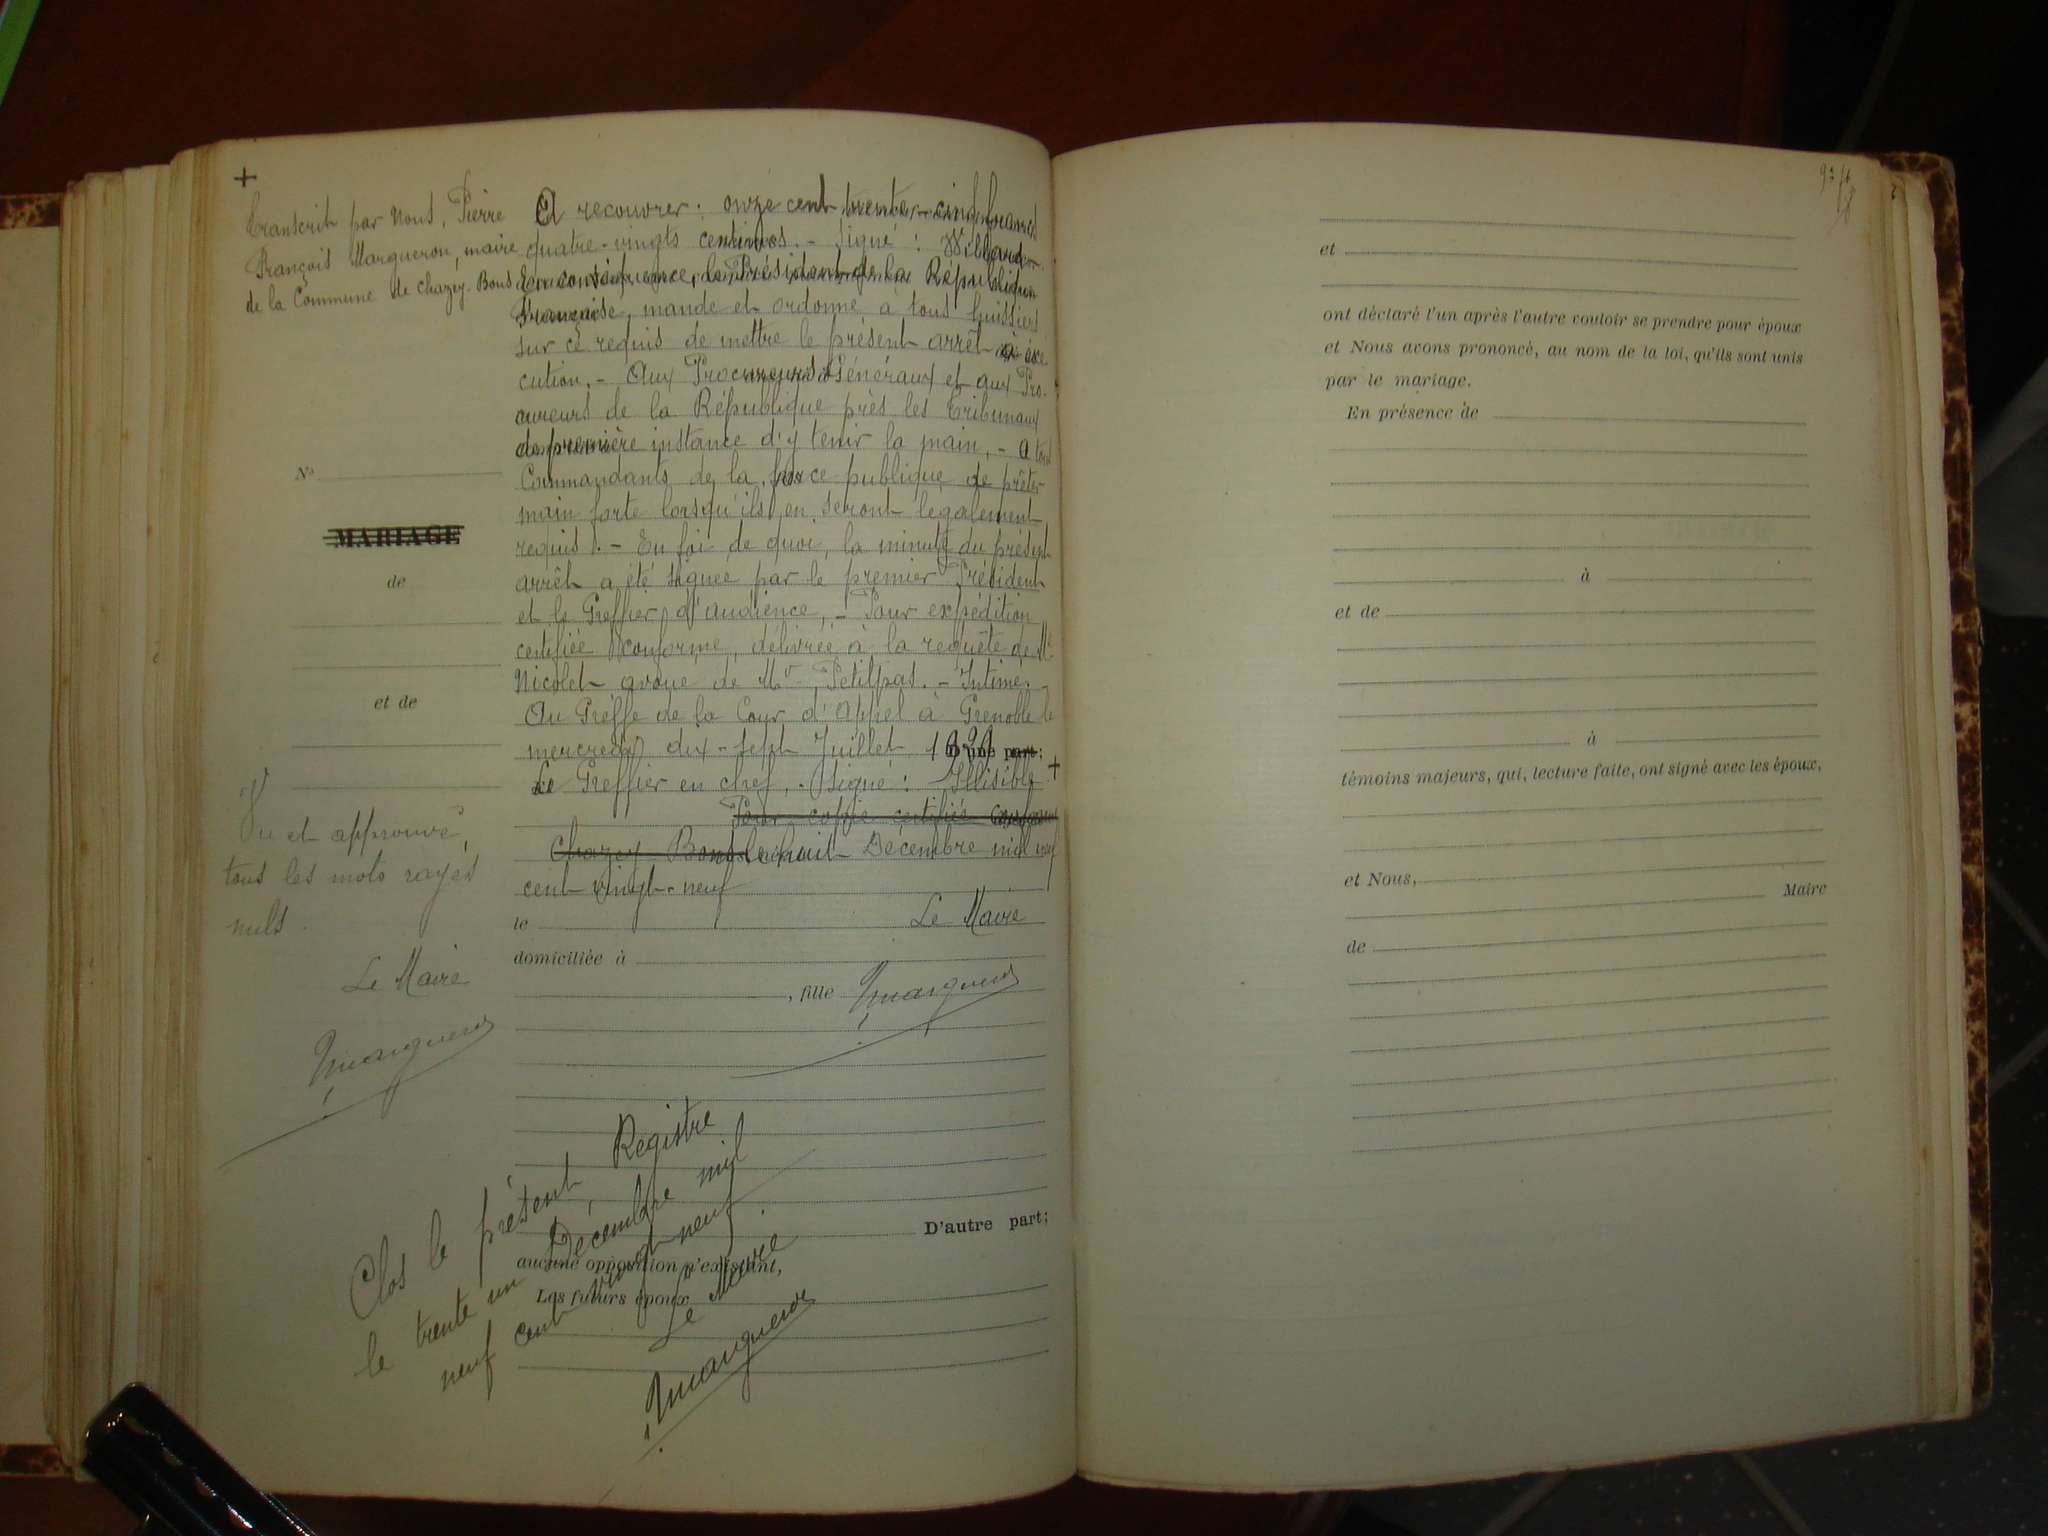 +
Transcrit par Nous, Pierre
François Margueron, maire
de la Commune de Chazey-Bons
N°
MARIAGE
de
et de
Vu et approuvé
tous les mots rayés
nuls.
Le Maire
Margueron
A recouvrer : onze cent trente-cinq francs
quatre-vingts centimes. - Signé :
En conséquence, le Président de la République
Française, mande et ordonne à tous huissiers
sur ce requis de mettre le présent arrêt à exé
cution. - Aux Procureurs Généraux et aux Pro-
cureurs de la République près les Tribunaux
de première instance d'y tenir la main, - A tous
Commandants de la force publique de prêter
main forte lorsqu'ils en seront légalement
requis. - En foi de quoi, la minute du présent
arrêt a été signée par le premier Président
et le Greffier d'audience, - Pour expédition
certifiée conforme, délivrée à la requête de Me
Nicolet avoué de Mr Petitpas. - Intimé.
Au Greffe de la Cour d'Appel à Grenoble le
mercredi dix-sept Juillet 1929 D'une part;
Le Greffier en chef, - Signé : Illisible +
Pour copie certifiée conforme
Chazey-Bons le huit Décembre mil neuf
cent vingt-neuf
le Le Maire
domiciliée à
, fille Margueron
Clos le présent Registre
le trente un Décembre mil
neuf cent vingt-neuf
Le Maire
Margueron
D'autre part;
aucune opposition n'existant,
Les futurs époux
et
ont déclaré l'un après l'autre vouloir se prendre pour époux
et Nous avons prononcé, au nom de la loi, qu'ils sont unis
par le mariage.
En présence de
à
et de
à
témoins majeurs, qui, lecture faite, ont signé avec les époux,
et Nous,
Maire
de